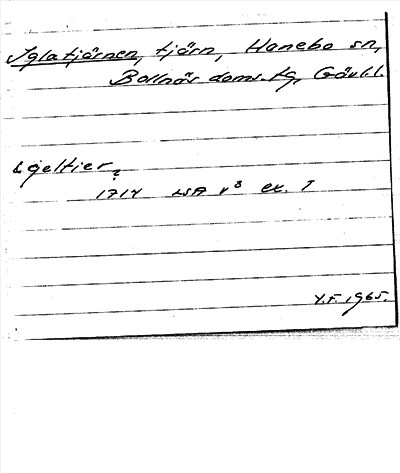 Iglatjärnen, tjärn, Hanebo sn,
Bollnäs doms.tg, Gävl.l.
Igeltier?
1714 LSA v8 ex. I
Y.F. 1965.